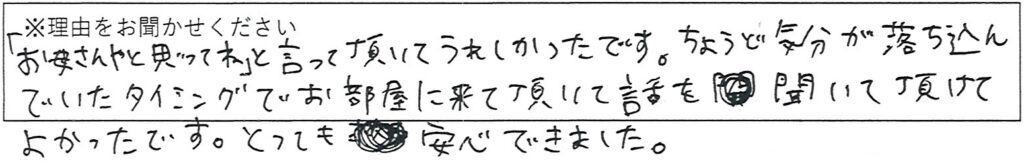 ※理由をお聞かせください
「お母さんやと思ってね」と言って頂いてうれしかったです。ちょうど気分が落ち込ん
でいたタイミングでお部屋に来て頂いて話を聞いて頂けて
よかったです。とっても安心できました。